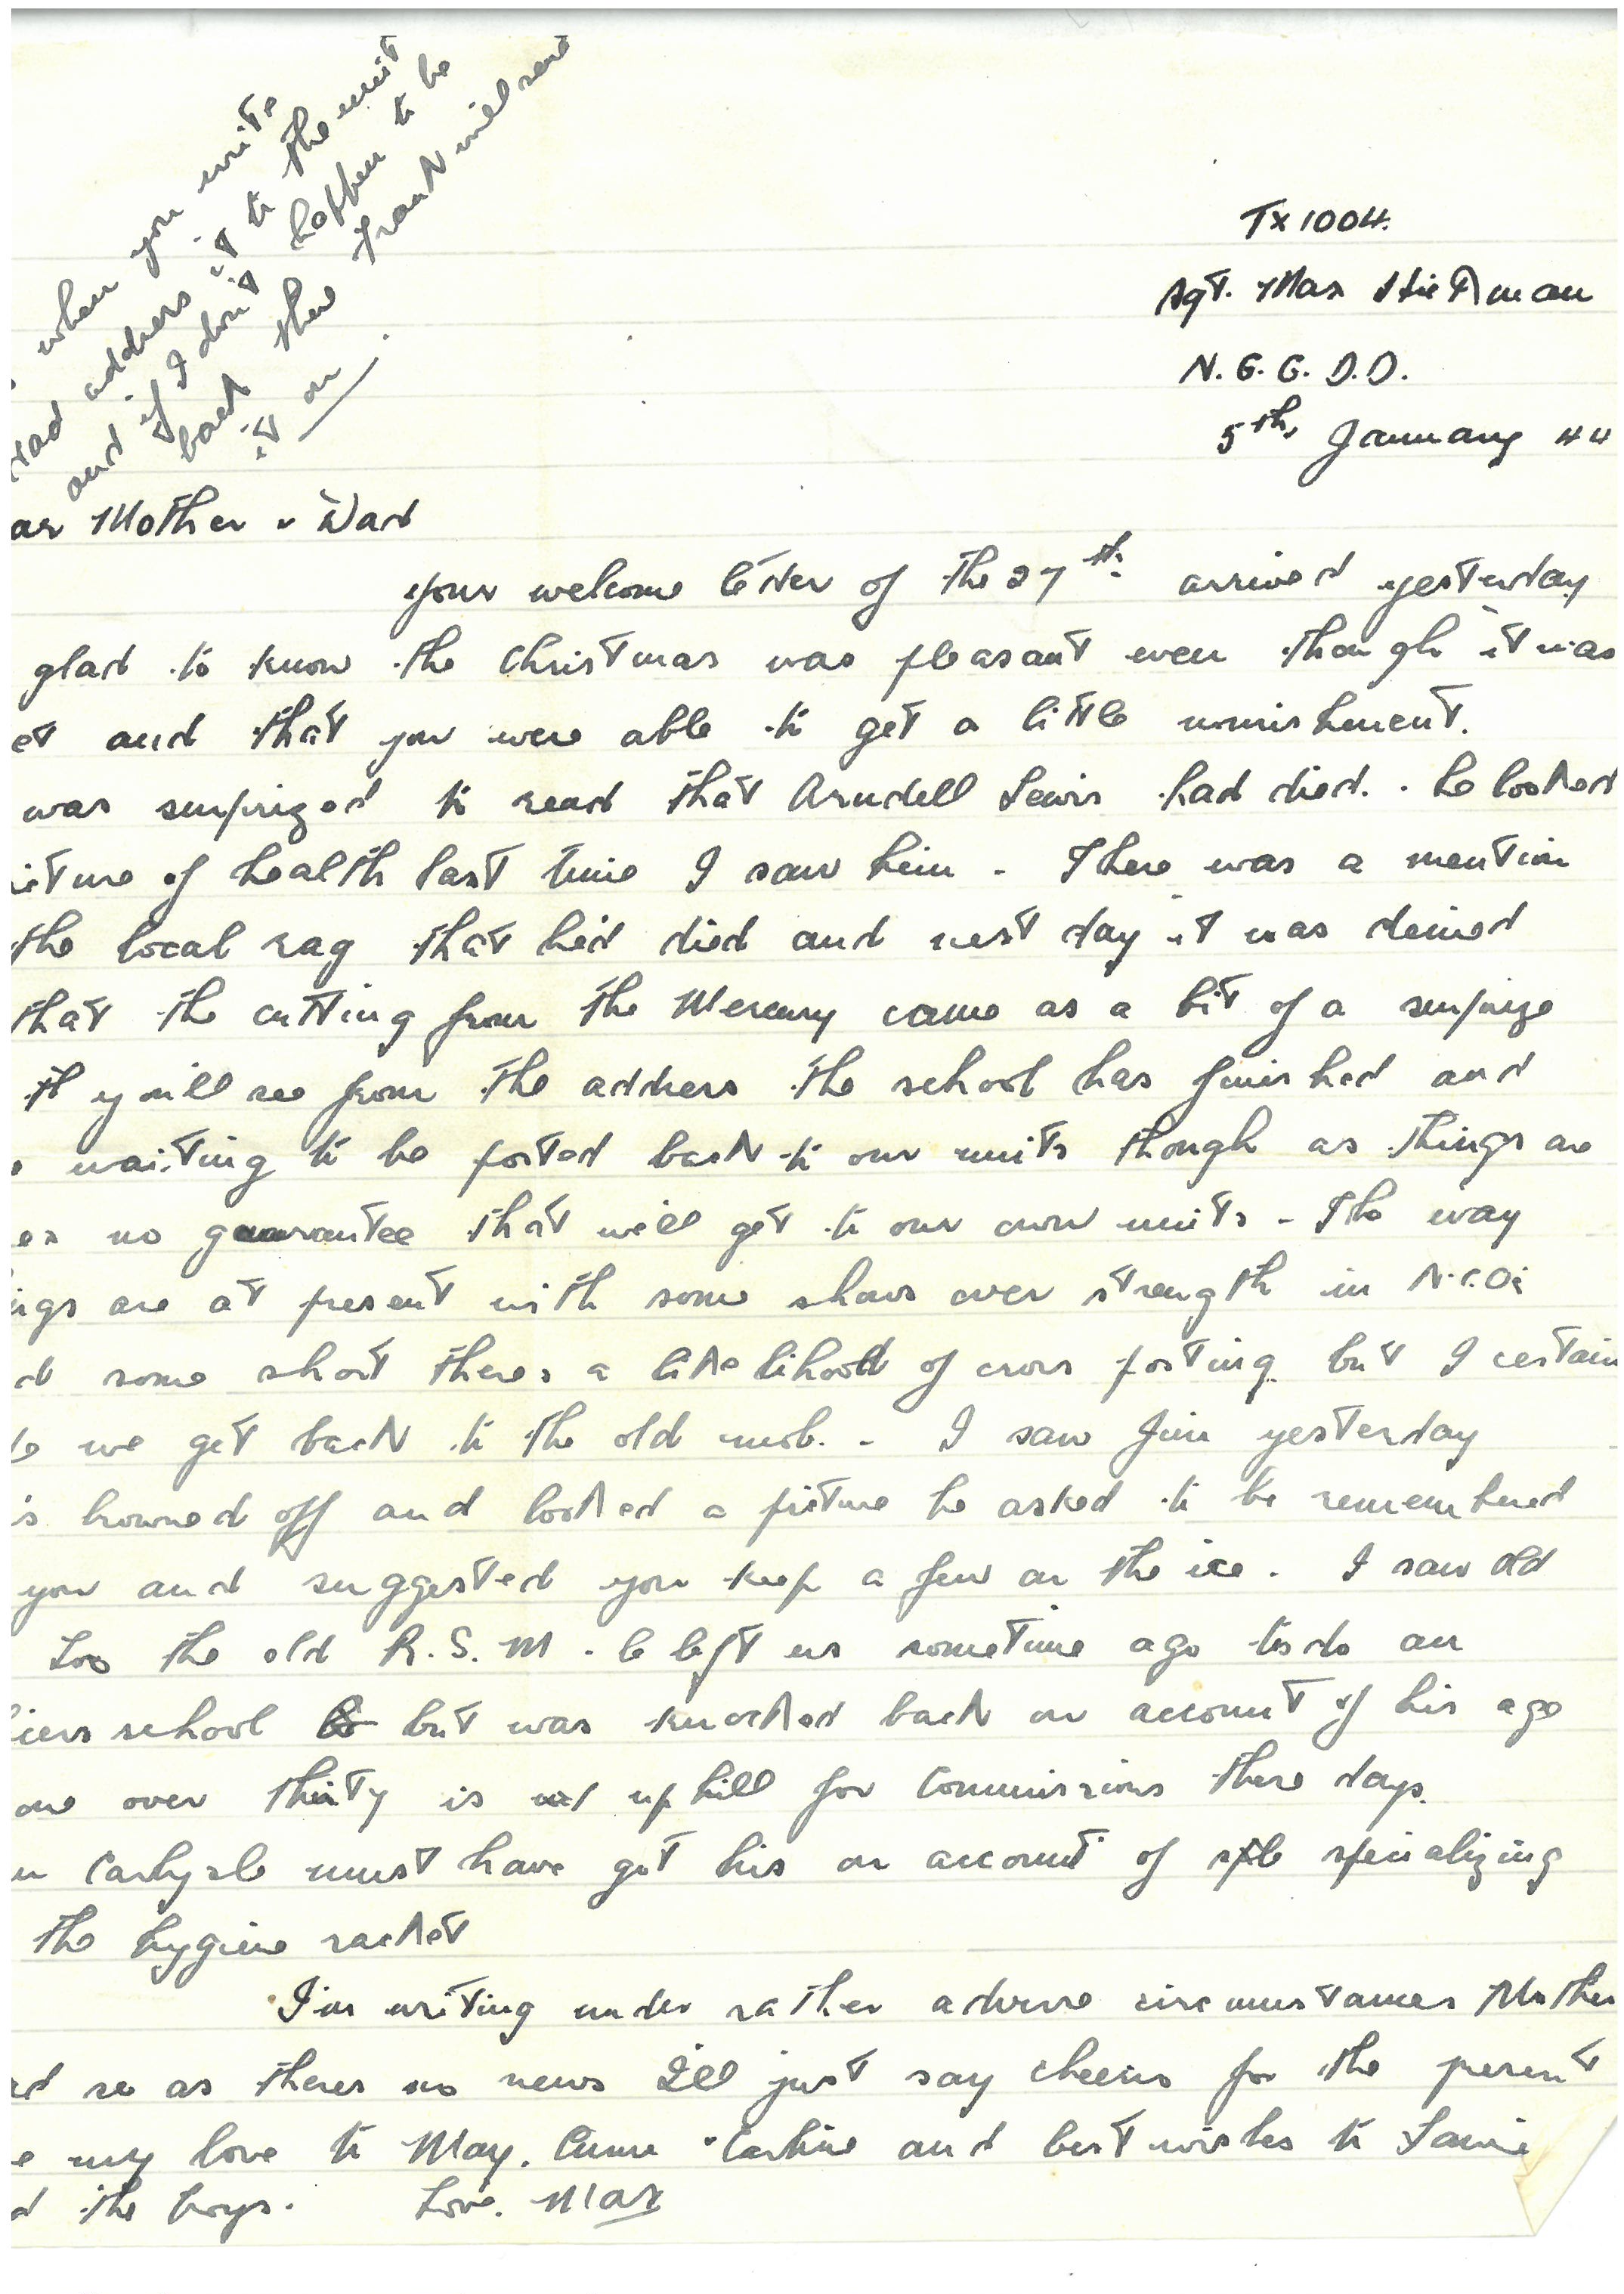 when you write
Dad address it to the unit
and if I don't happen to be
back there Frank will send
it on.
TX1004.
Sgt. Max
N.G.G.D.D.
5th, January 44
ar Mother & Dad
your welcome letter of the 27th. arrived yesterday
glad to know the Christmas was pleasant even though it was
et and that you were able to get a little nourishment.
was surprized to read that Arndell Lewis had died. he looked
icture of health last time I saw him - There was a mention
the local rag that hed died and next day it was denied
that the cutting from the Mercury came as a bit of a surprize
youll see from the address the school has finished and
waiting to be posted back to our units though as things are
es no guarantee that we'll get to our own units - The way
ings are at present with some shows over strength in N.C.Os
d some short theres a likelihood of cross posting but I certain
we get back to the old mob. - I saw Jim yesterday
s browned off and looked a picture he asked to be remembered
you and suggested you keep a few on the ice. I saw old
the old R.S.M. he left us sometime ago to do an
icers school but was knocked back on account of his age
one over thirty is up hill for Commissions these days.
n Carlysle must have got his on account of spezializing
the hygiene racket
I'm writing under rather adverse circumstances Mother
nd so as theres no news I'll just say cheerio for the present
e my love to May. and best wishes to
d the boys. Love. Max